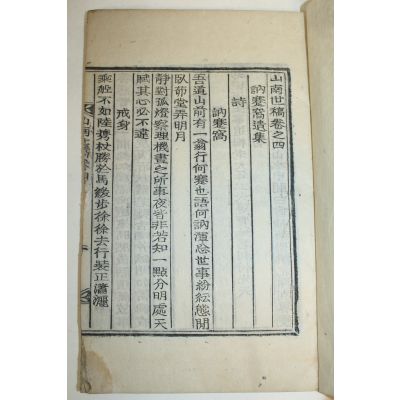 山南世稿卷之四
訥蹇窩遺集
詩
訥蹇窩
吾道山前有一翁行何蹇也語何訥渾忘世事紛紜態閒
臥茆堂弄明月
靜對孤燈察理機晝之所事夜皆非若知一點分明處天
賦其心必不違
戒身
乘舩不如陸携杖勝於馬緩步徐徐去行裝正瀟灑